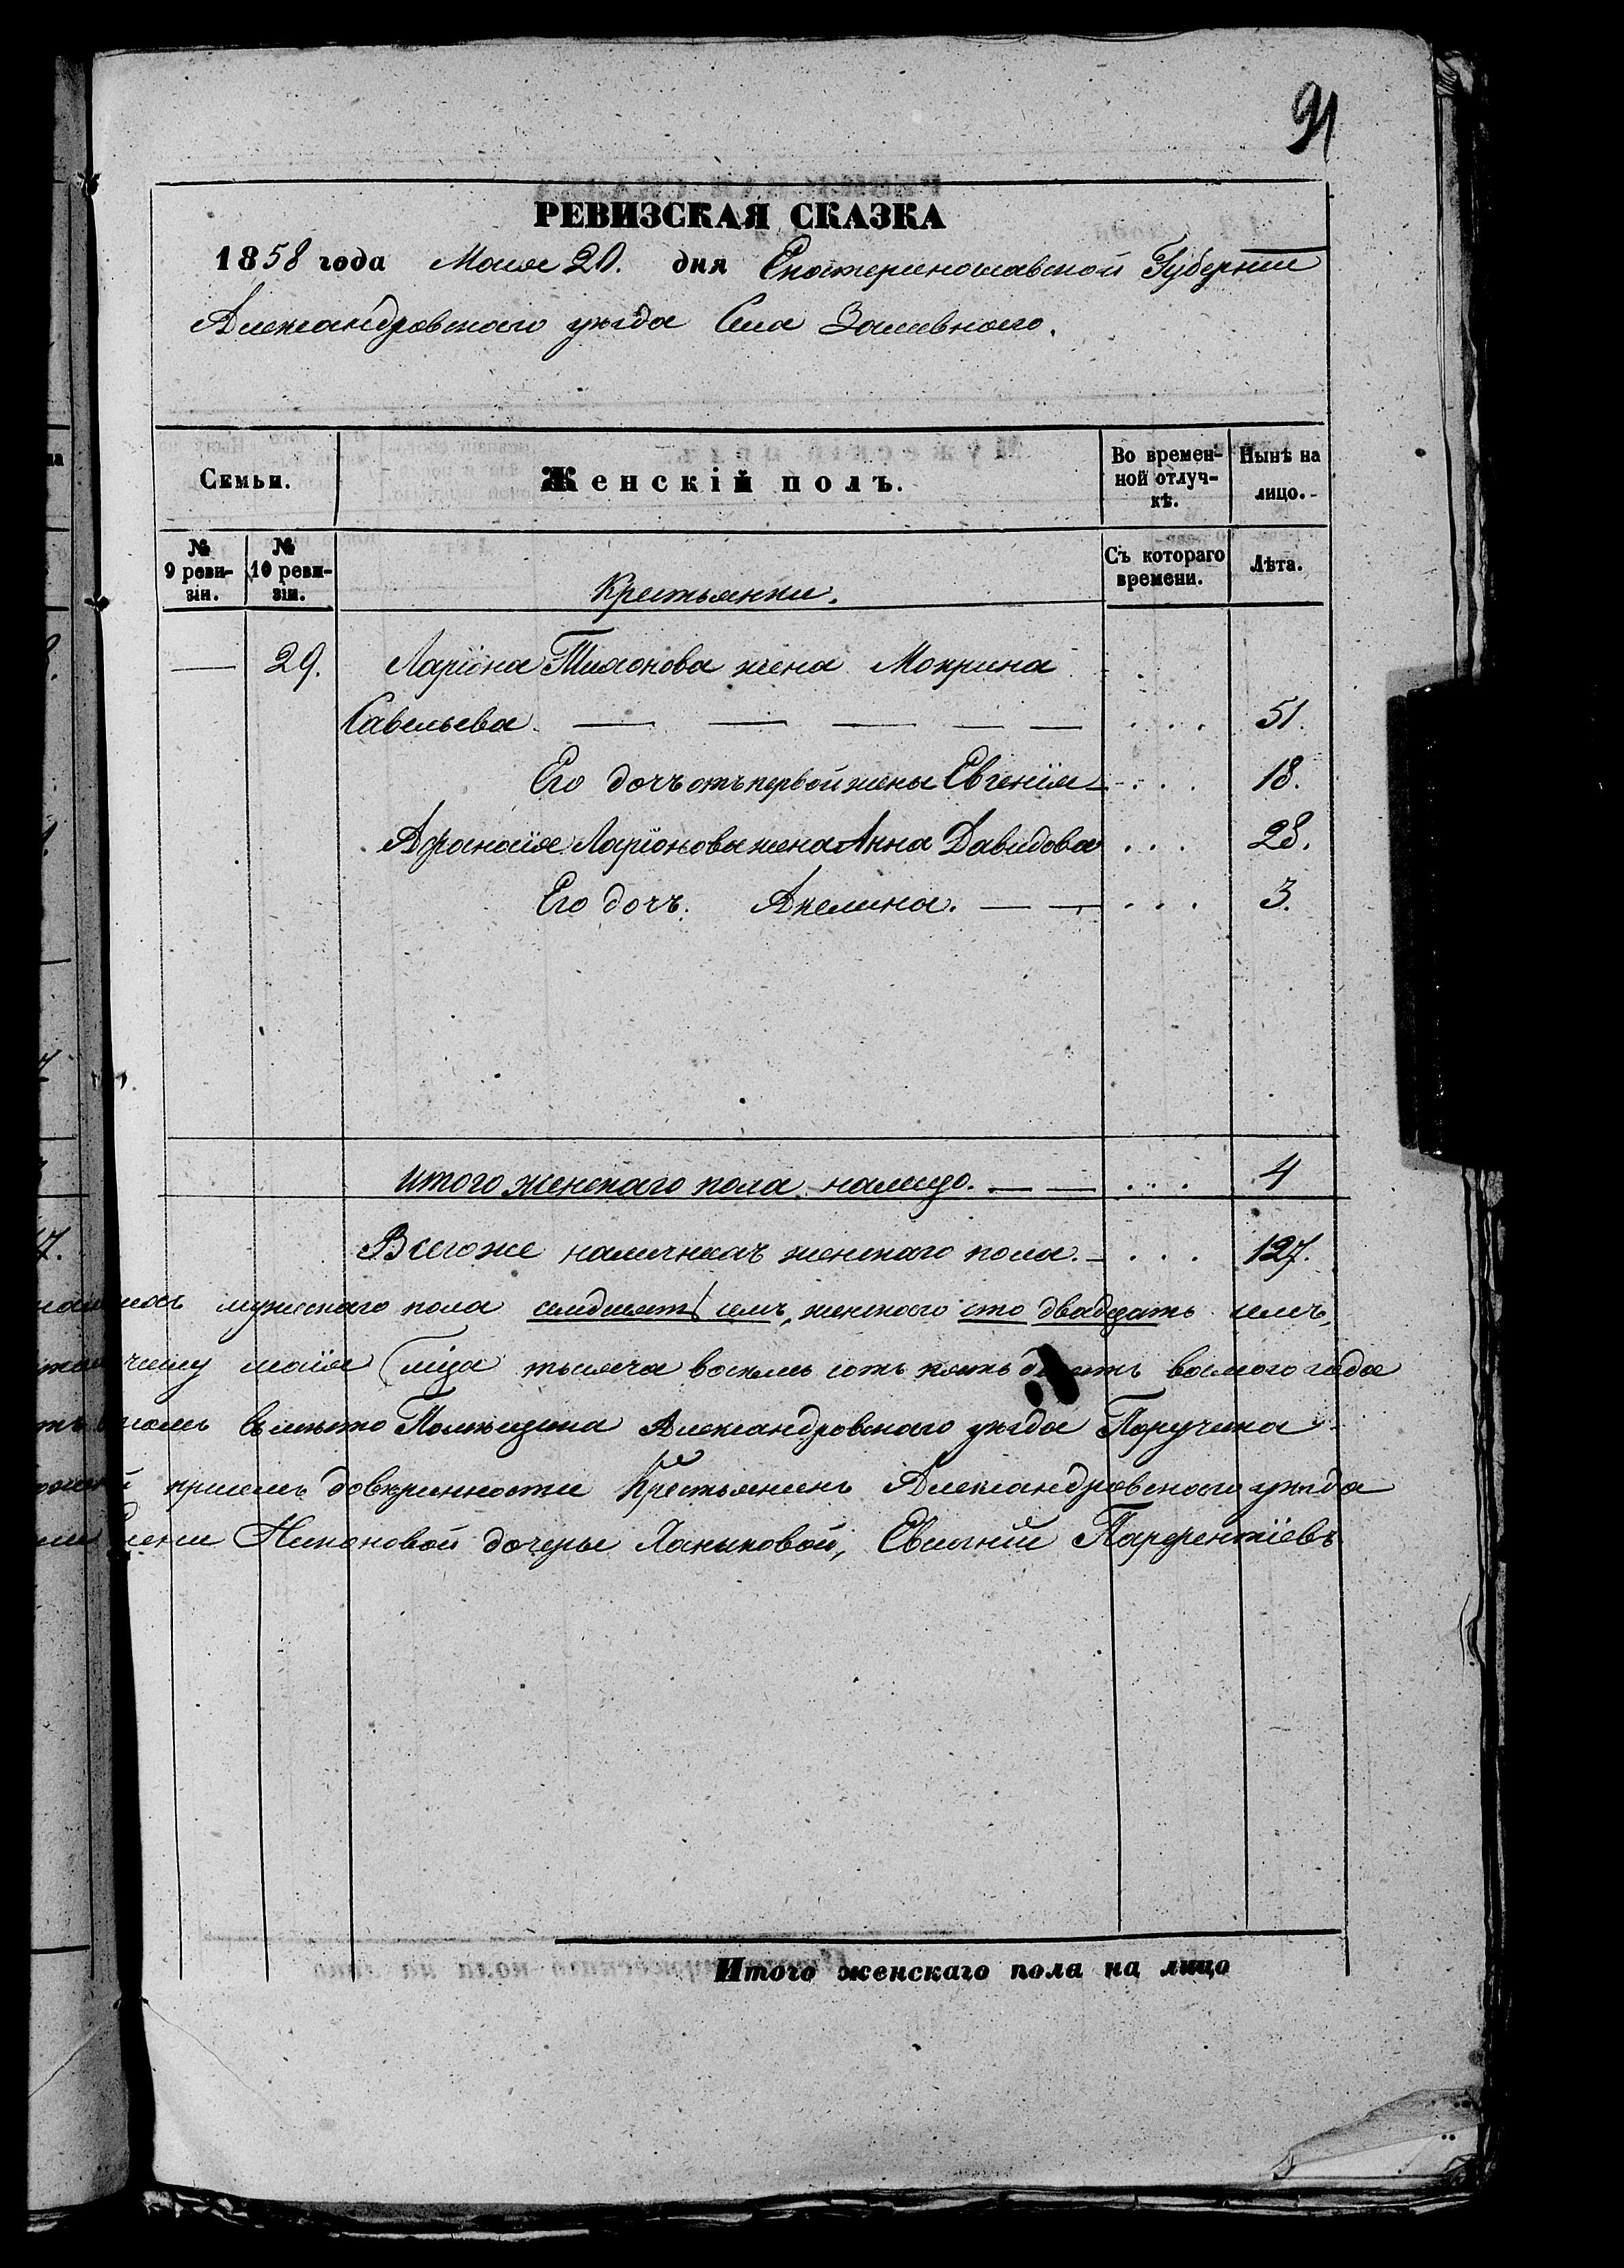 91
РЕВИЗСКАЯ СКАЗКА
1858 года Маия 20. дня Екатеринославской Губерніи
Александровскаго уѣзда Села Заливнаго.
Семьи.
Женскій полъ.
Во времен-
ной отлуч-
кѣ.
Нынѣ на
лицо.
№
9 реви-
зіи.
№
10 реви-
зіи.
Крестьянки.
Съ котораго
времени.
Лѣта.
— 29. Ларіона Тихонова жена Мокрина
Савельева — — — — — . . . 51.
Его дочъ отъ первой жены Евгенія . . . 18.
Афанасія Ларіонова жена Анна Давидова . . . 28.
Его дочъ. Акелина. — — . . . 3.
Итого женскаго пола налицо. — — . . . 4
Всегоже женскаго пола. — . . . 127.
мужескаго пола семдесятъ семъ, женскаго сто двадцать семъ,
маія тысяча восемь сотъ пять восмого года
Александровскаго уѣзда Поручика
довѣренности Крестьянинъ Александровскаго уѣзда
дочерью Евгеній Парфентіевъ
Итого женскаго пола на лицо